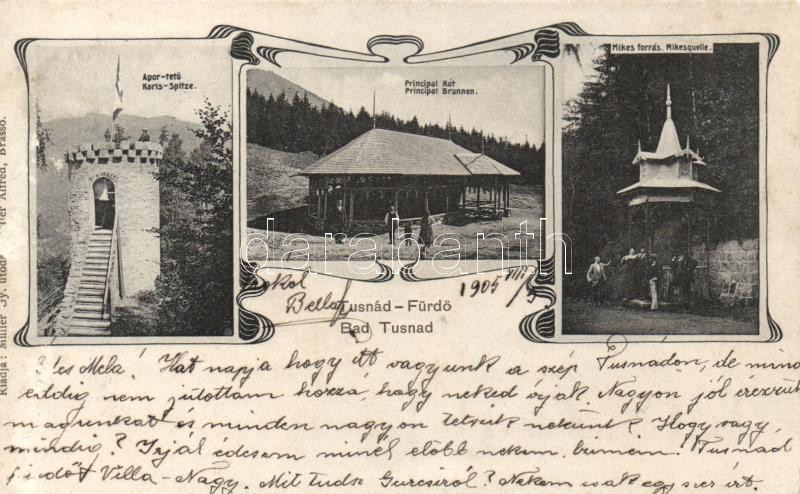 Apor-tető
Karls-Spitze.
Principal Kút
Principal Brunnen.
Mikes forrás. Mikesquelle.
Kiadja: Müller Gy. utóda Alfréd, Brassó.
darabanth
csokol
Bella
1905 VIII/
Tusnád-Fürdő
Bad Tusnad
Édes Mela! Hat napja hogy itt vagyunk a szép Tusnádon, de mind
eddig nem jutottam hozza, hogy neked írjak. Nagyon jól érezzük
magunkat és minden nagyon tetszik nekünk. Hogy vagy,
mindig? Irjál édesem minél előbb nekem. Tusnad
fürdőt Villa-Nagy. Mit tudsz Gurcsiról? Nekem csak egyszer írt.